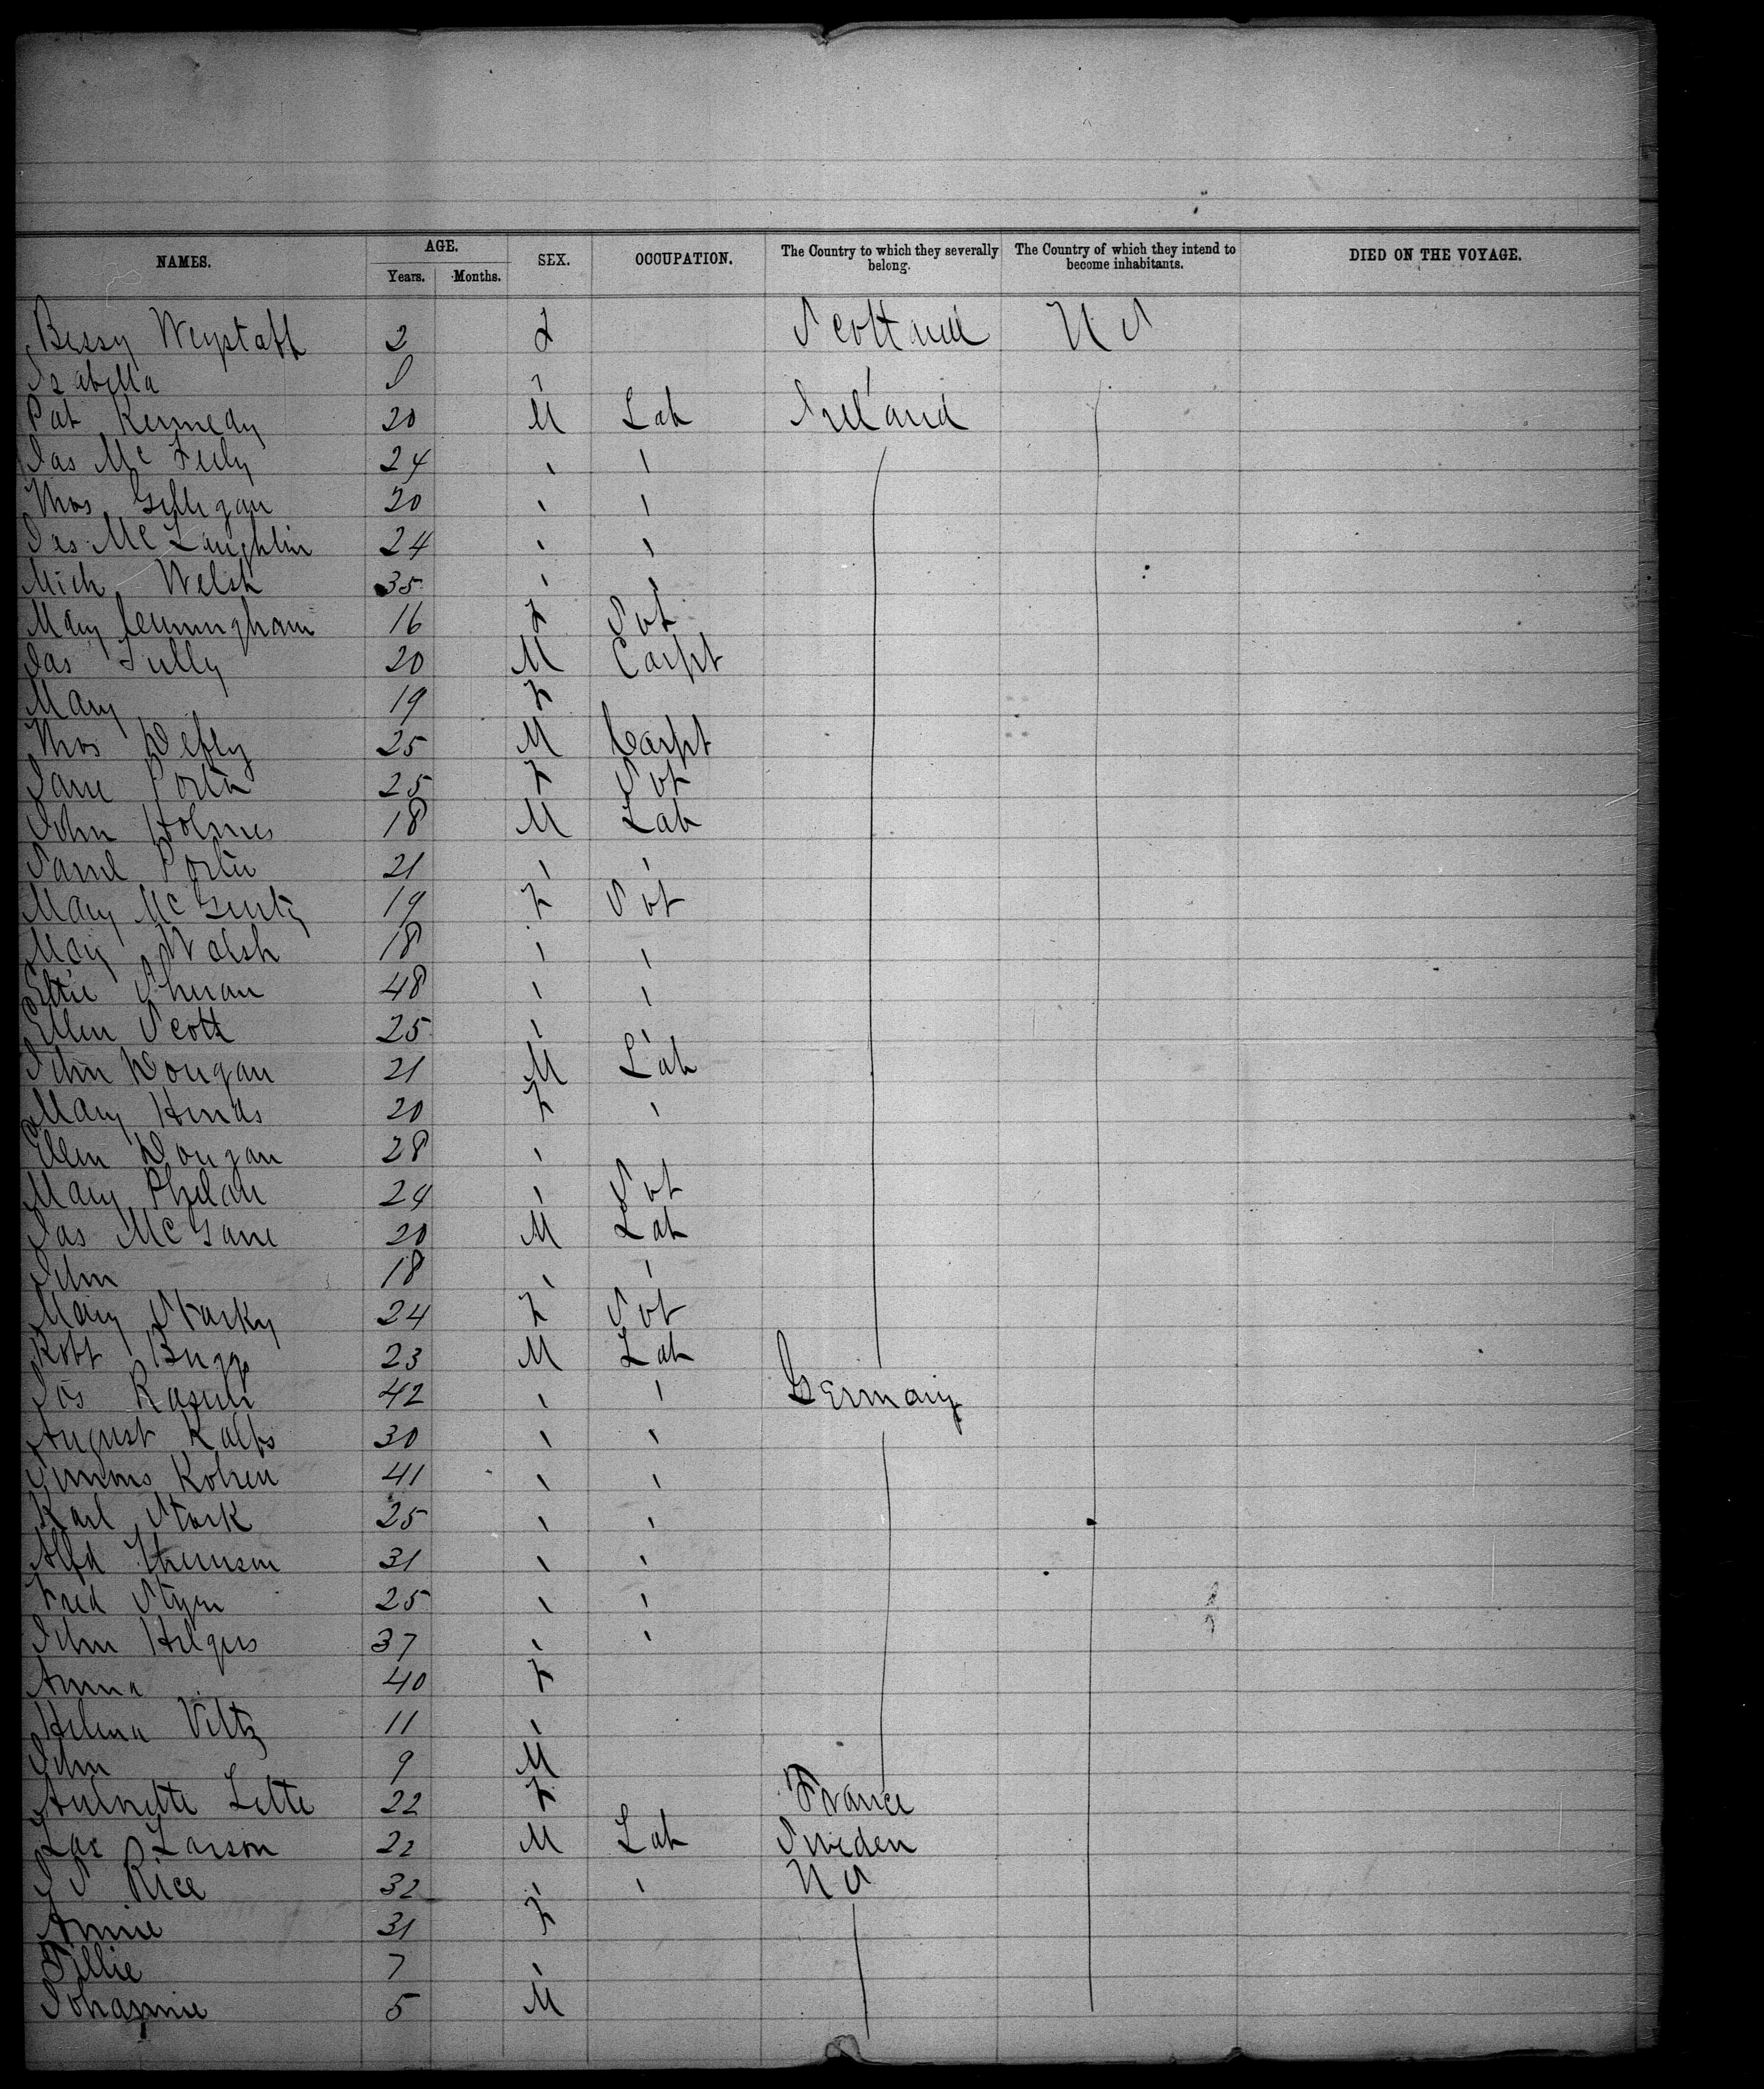 NAMES. AGE. SEX. OCCUPATION. The Country to which they severally belong. The Country of which they intend to become inhabitants. DIED ON THE VOYAGE.
Years. Months.
Bessy Weystaff 2 F Scotland U S
Isabella
Pat Kennedy 20 M Lab Ireland
Jas Mc Feely 24 " "
Thos Gilligan 20 " "
Jas Mc Laughlin 24 " "
Mich Welsh 35 " "
Mary Cunningham 16 F Svt
Jas Tully 20 M Carpt
Mary 19 F
Thos Defley 25 M Carpt
Jane Porter 25 F Svt
John Holmes 18 M Lab
Saml Porter 21 " "
Mary McGinty 19 F Svt
Mary Walsh 18 " "
48 " "
Ellen Scott 25 " "
John Dougan 21 M Lab
Mary Hinds 20 F "
Ellen Dougan 28 "
Mary Phelan 24 " Svt
Jas McGane 20 M Lab
John 18 " "
Mary Starky 24 F Svt
Robt 23 M Lab
Jos 42 " " Germany
August 30 " "
Kohen 41 " "
Karl Stark 25 " "
Alfd 31 " "
Fred 25 " "
John Hilgers 37 " "
Anna 40 F
Helena Viltz 11 "
John 9 M
Lette 22 F France
Larson 22 M Lab Sweden
J S Rice 32 " " U S
Annie 31 F
Tillie 7 "
Johannie 5 M